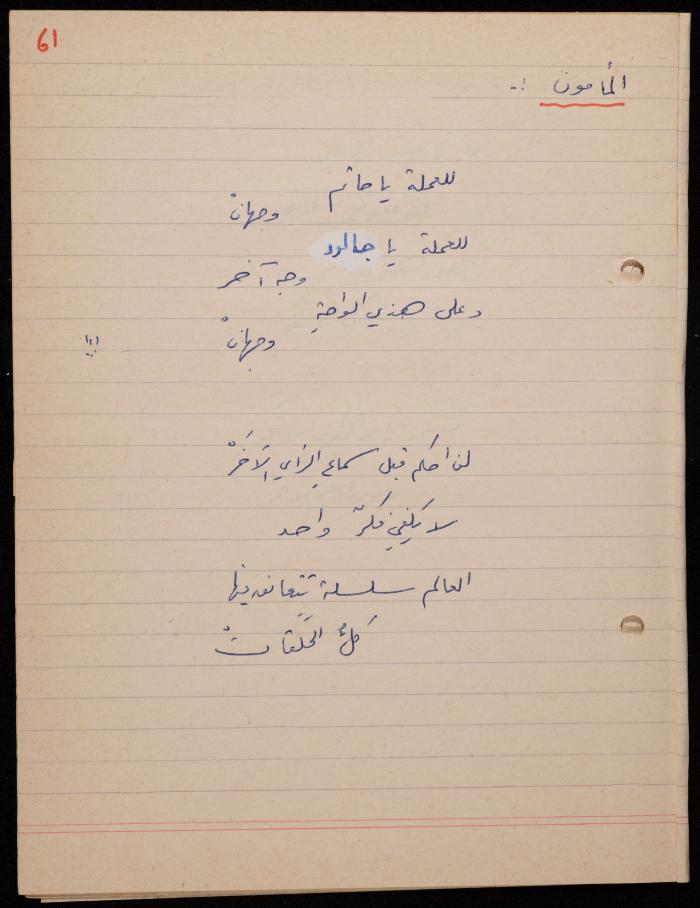 61
المأمون :-
للعملة يا حاتم
وجهانْ
للعملة يا جالود
وجه آخر
وعلى هذي الواحةِ
وجهانْ
!!!
لن احكم قبل سماعِ الرأي الآخَرْ
لا يكفي فكرٌ واحد
العالم سلسلة تتعانق فيها
كلُّ الحَلَقاتْ